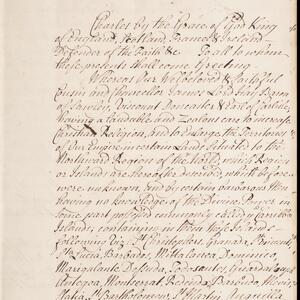 Charles by the Grace of God King
of England, Scotland, France & Ireland
Defender of the Faith &c To all to whom
these presents shall come Greeting
Whereas Our Welbeloved & faithful
Cousin and Chancellor James Lord Hay Baron
of Sawley, Viscount Doncaster & Earl of Carlisle,
having a laudable and Zealous care to increase
Christian Religion, and to Enlarge the Territorys
of Our Empire in certain Lands situated to the
Northward Region of the World, which Region
or Islands are hereafter described, which before
were unknown, and by certain Barbarous Men
having no knowledge of the Divine Power in
some part possessed commonly called Caribee
Islands, containing in them these Islands
following Viz. St. Christophers, Granada,
St. Lucia, Barbados, Mittalanea Dominico,
Marigalante Todosantes, Guardalupe
Antegoa, Montserrat, Redonda, Barbuda, Mevis,
St. Bartholomew, St. Martin